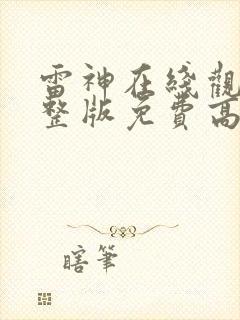 雷神在綫觀
整版免費高
瞎筆